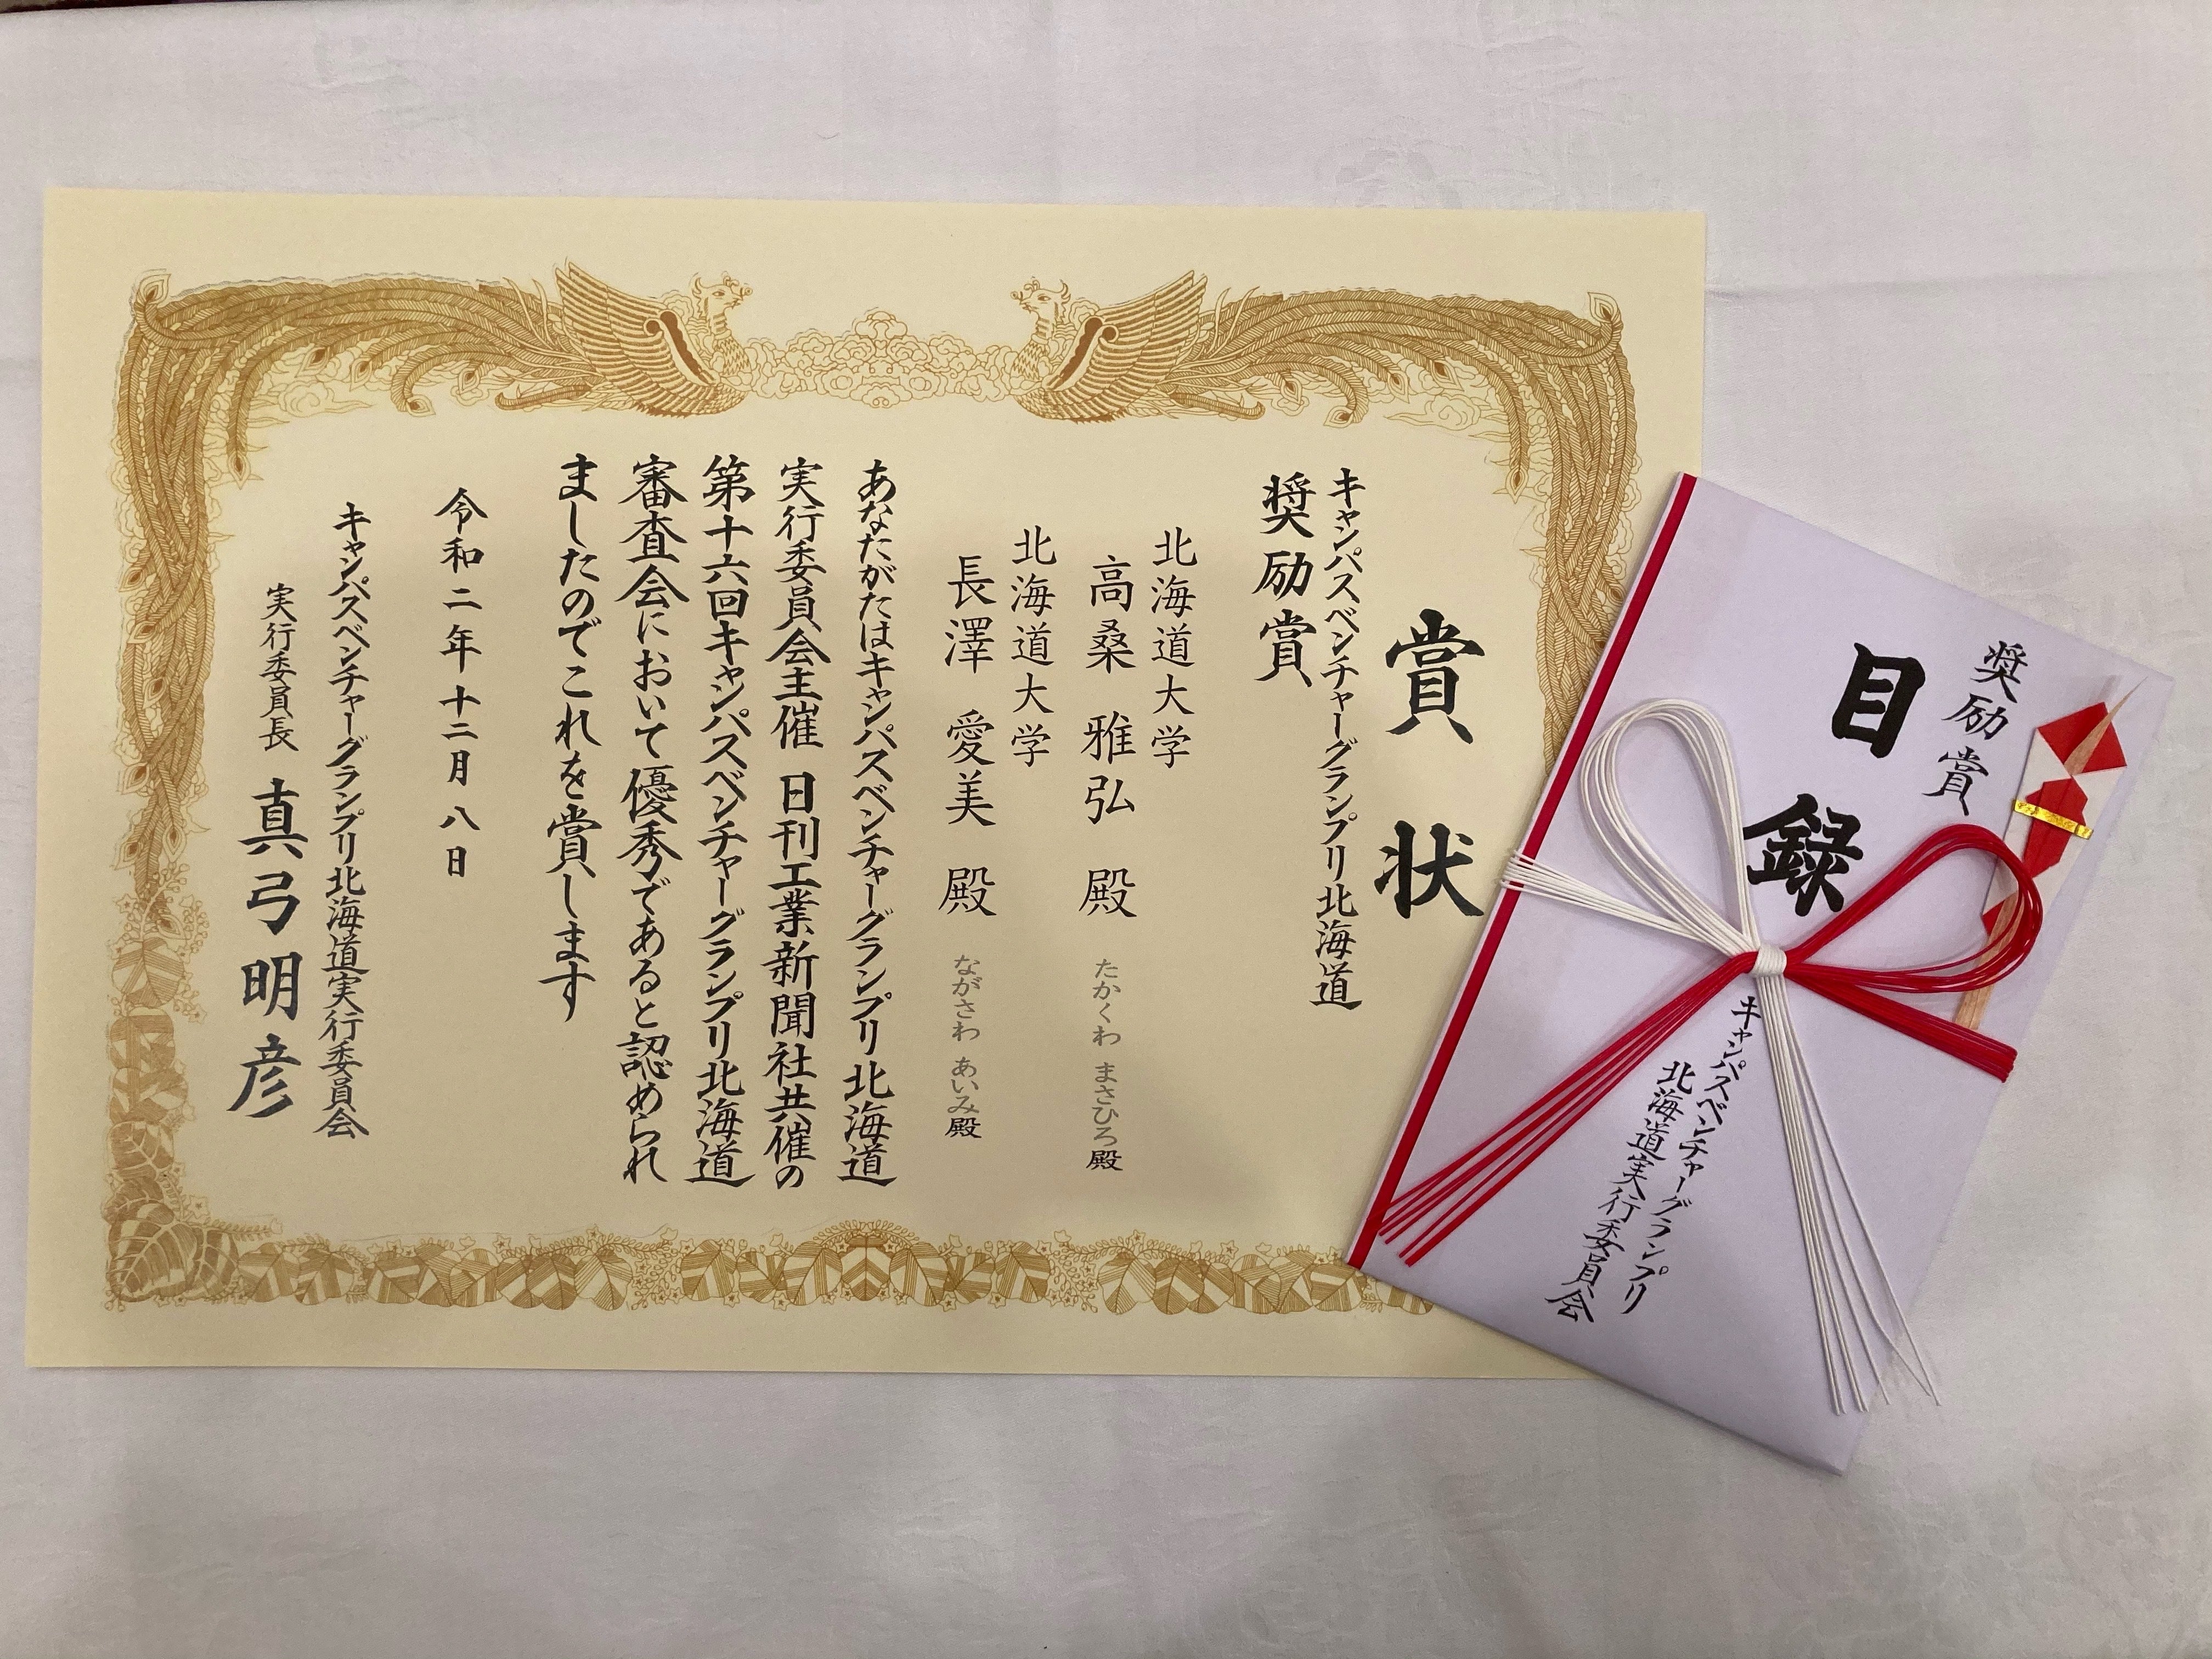 賞状
キャンパスベンチャーグランプリ北海道
奨励賞
北海道大学
高桑 雅弘 殿 たかくわ まさひろ殿
北海道大学
長澤 愛美 殿 ながさわ あいみ殿
あなたがたはキャンパスベンチャーグランプリ北海道
実行委員会主催 日刊工業新聞社共催の
第十六回キャンパスベンチャーグランプリ北海道
審査会において優秀であると認められ
ましたのでこれを賞します
令和二年十二月八日
キャンパスベンチャーグランプリ北海道実行委員会
実行委員長 真弓明彦
奨励賞
目録
キャンパスベンチャーグランプリ
北海道実行委員会